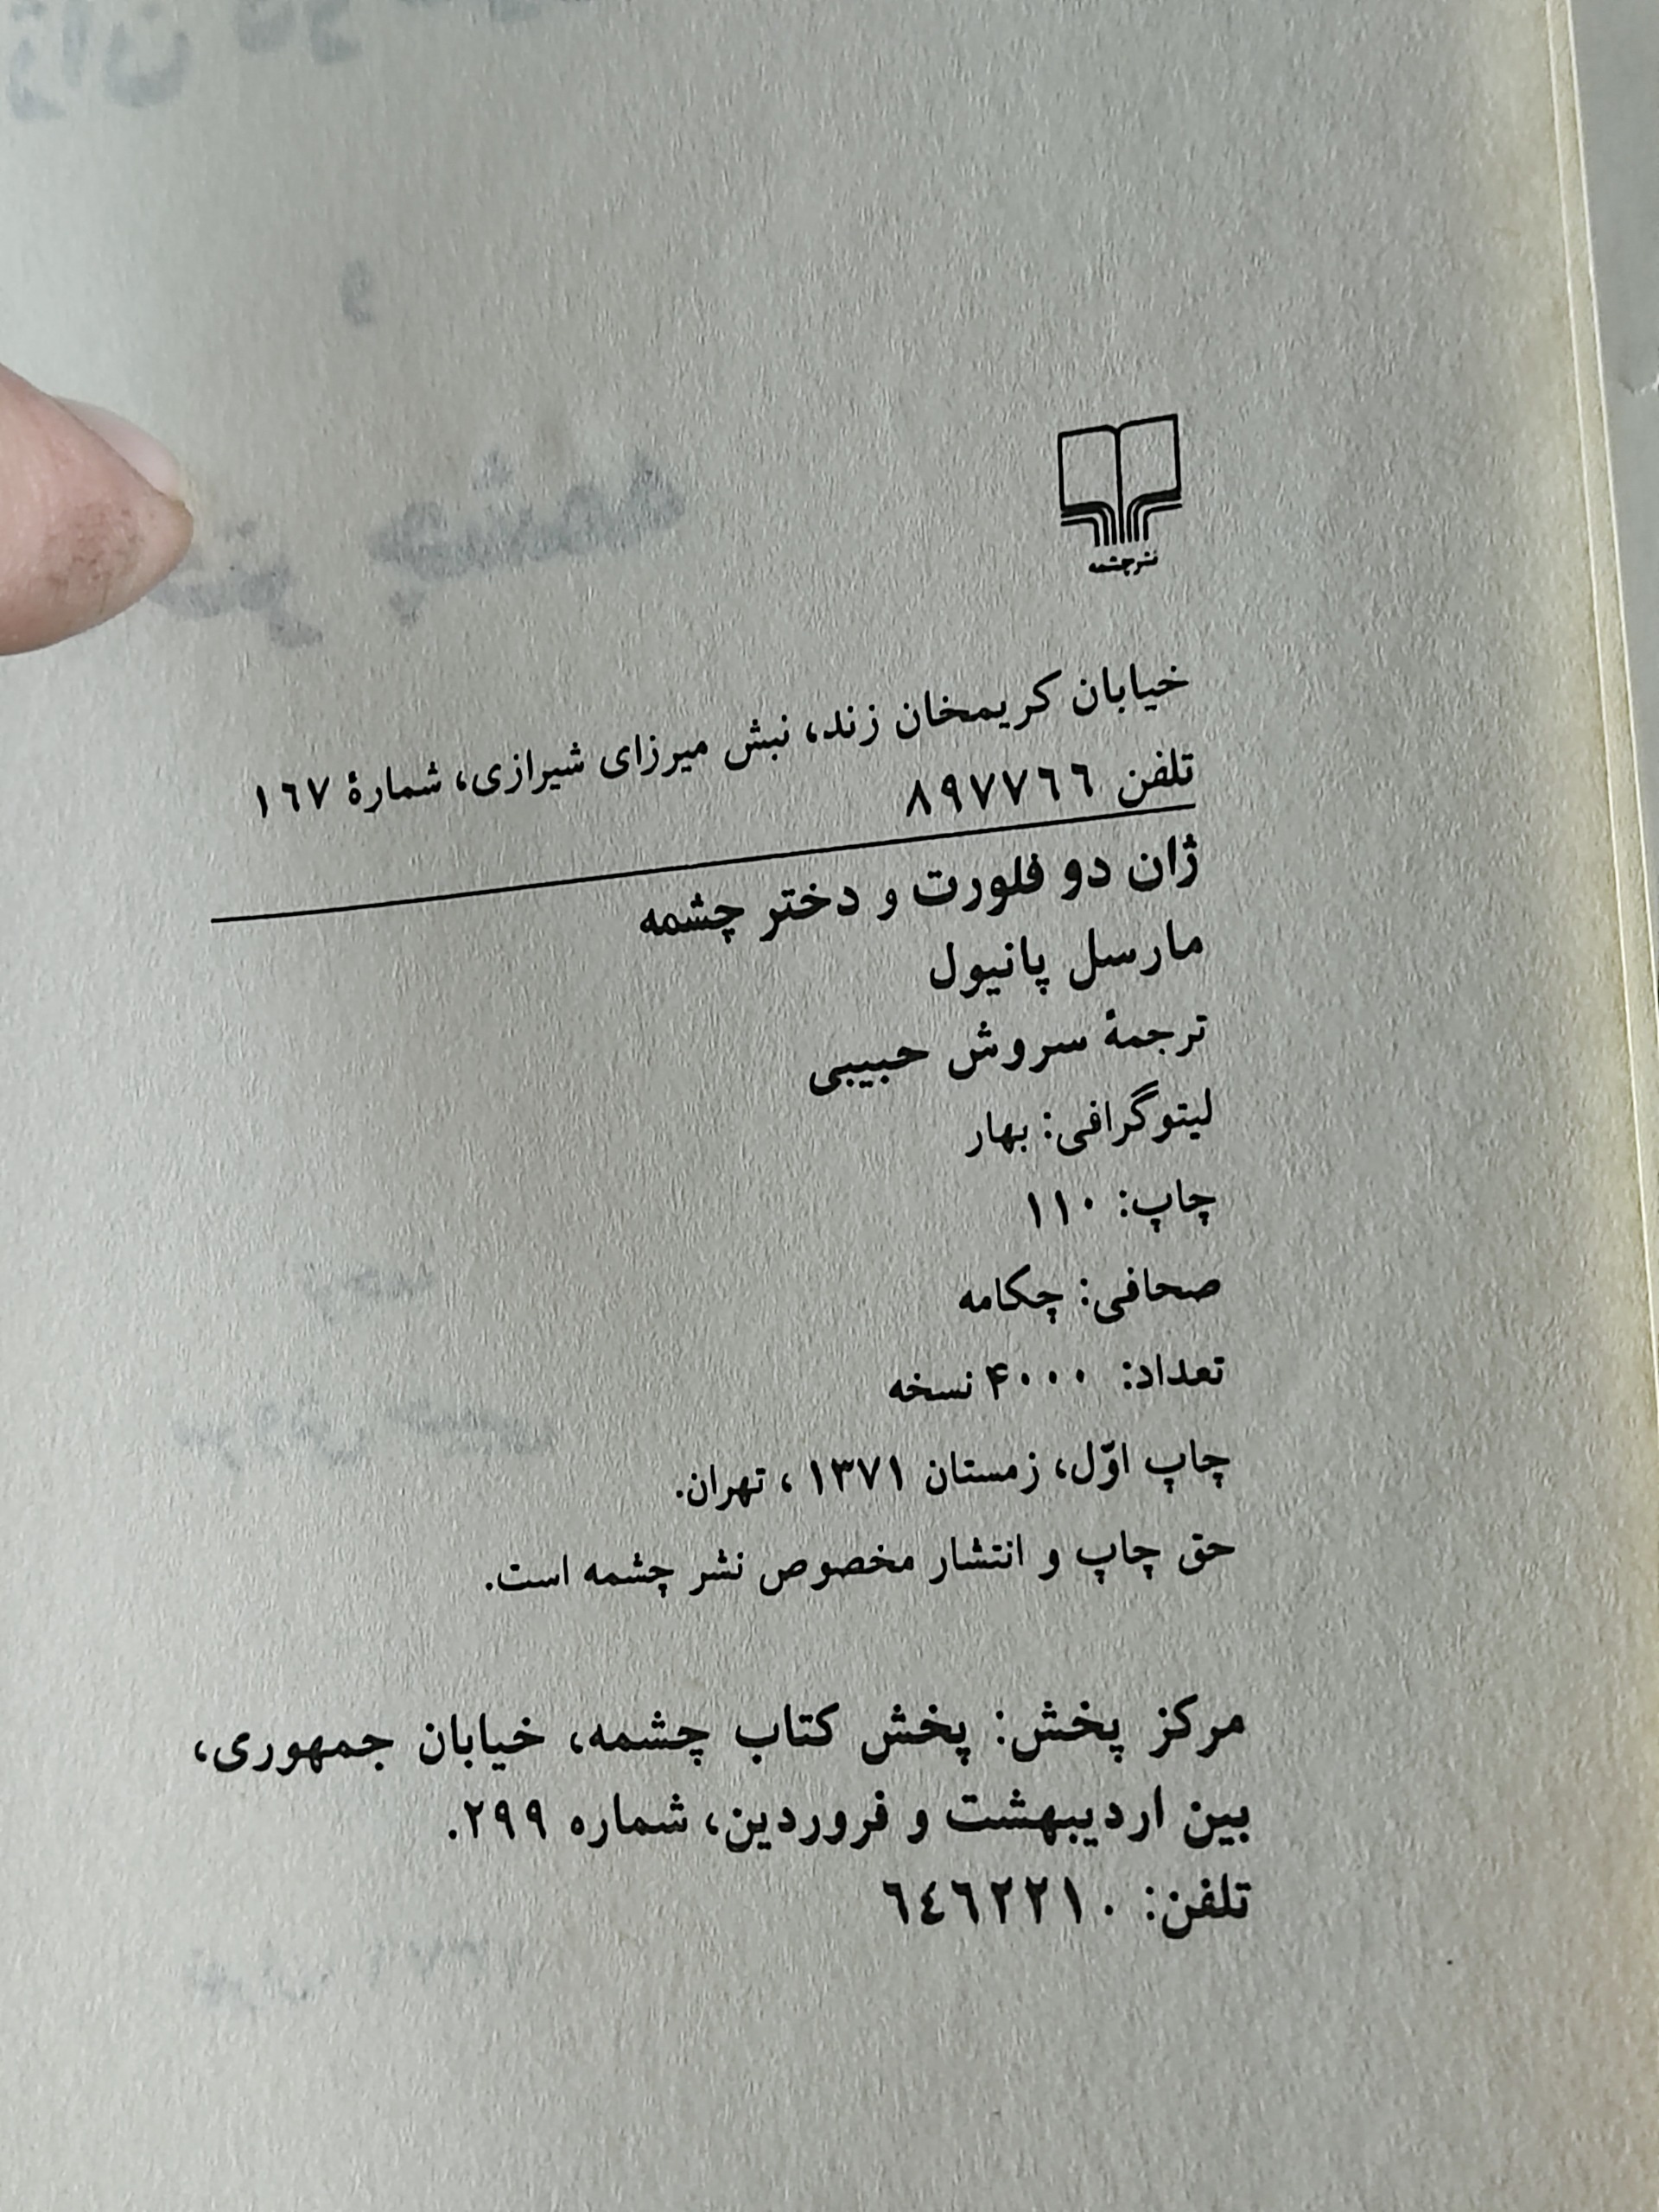 نشر چشمه
خیابان کریمخان زند، نبش میرزای شیرازی، شمارهٔ ١٦٧
تلفن ٨٩٧٧٦٦
ژان دو فلورت و دختر چشمه
مارسل پانیول
ترجمهٔ سروش حبیبی
لیتوگرافی: بهار
چاپ: ۱۱۰
صحافی: چکامه
تعداد: ۴۰۰۰ نسخه
چاپ اوّل، زمستان ۱۳۷۱، تهران.
حق چاپ و انتشار مخصوص نشر چشمه است.
مرکز پخش: پخش کتاب چشمه، خیابان جمهوری،
بین اردیبهشت و فروردین، شماره ۲۹۹.
تلفن: ٦٤٦٢٢١٠